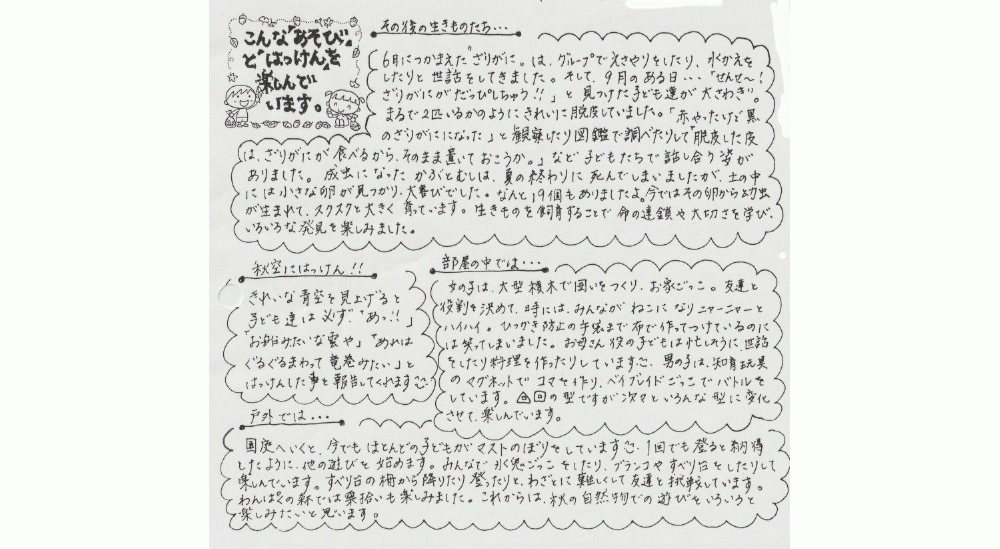 こんな「あそび」
と「はっけん」を
楽しんで
います。
その後の生きものたち・・・
6月につかまえた"ざりがに"は、グループでえさやりをしたり、水かえを
したりと世話をしてきました。そして、9月のある日・・・「せんせ〜!
ざりがにがだっぴしちゃう!!」と見つけた子ども達が大さわぎ。
まるで2匹いるかのようにきれいに脱皮していました。「赤やったけど黒
のざりがにになった」と観察したり図鑑で調べたりして「脱皮した皮
は、ざりがにが食べるから、そのまま置いておこうか。」など子どもたちで話し合う姿が
ありました。成虫になったかぶとむしは、夏の終わりに死んでしまいましたが、土の中
には小さな卵が見つかり、大喜びでした。なんと19個もありましたよ。今ではその卵から幼虫
が生まれて、スクスクと大きく育っています。生きものを飼育することで命の連鎖や大切さを学び、
いろいろな発見を楽しみました。
秋空にはっけん!!
きれいな青空を見上げると
子ども達は必ず「あっ!!」
「お船みたいな雲や」「あれは
ぐるぐるまわって竜巻みたい」と
はっけんした事を報告してくれます
部屋の中では・・・
女の子は、大型積木で囲いをつくり、お家ごっこ。友達と
役割を決めて、時には、みんながねこになりニャーニャーと
ハイハイ。ひっかき防止の手袋まで布で作ってつけているのに
は笑ってしまいました。お母さん役の子どもは忙しそうに、世話
をしたり料理を作ったりしています。男の子は、知育玩具
のマグネットでコマを作り、ベイブレイドごっこでバトルを
しています。△□の型ですが次々といろんな型に変化
させて、楽しんでいます。
戸外では・・・
園庭へいくと、今でもほとんどの子どもがマストのぼりをしています。1回でも登ると納得
したように、他の遊びを始めます。みんなで氷鬼ごっこをしたり、ブランコやすべり台をしたりして
楽しんでいます。すべり台の柵から降りたり登ったりと、わざとに難しくして友達と挑戦しています。
わんぱくの森では栗拾いも楽しみました。これからは、秋の自然物での遊びをいろいろと
楽しみたいと思います。